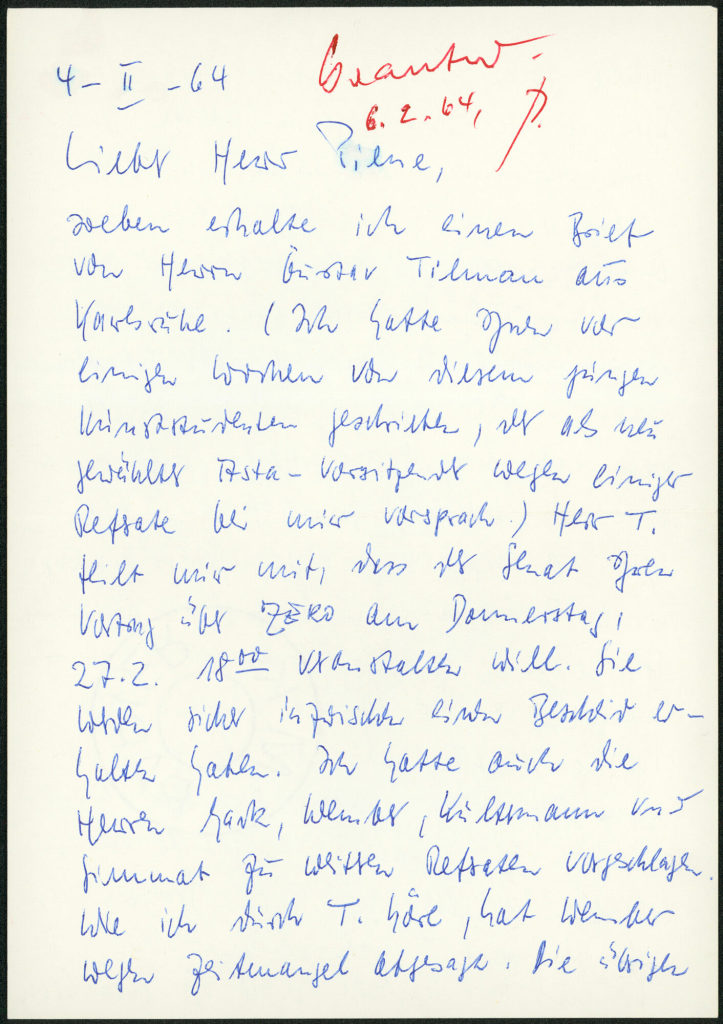 4-II-64
Beantw.
6.2.64, P.
Lieber Herr Piene,
soeben erhalte ich einen Brief
von Herrn Gustav Tilman aus
Karlsruhe. (Ich hatte Ihnen vor
einigen Wochen von diesem jungen
Kunststudenten geschrieben, der als neu
gewählter Asta-Vorsitzender wegen einiger
Referate bei mir vorsprach.) Herr T.
teilt mir mit, dass der Senat Ihren
Vortrag über ZERO am Donnerstag,
27.2. 1800 veranstalten will. Sie
werden sicher inzwischen einen Bescheid er-
halten haben. Ich hatte auch die
Herren Mack, Wember, Kultermann und
Simmat zu weiteren Referaten vorgeschlagen.
Wie ich durch T. höre, hat Wember
wegen Zeitmangel abgesagt. Die übrigen